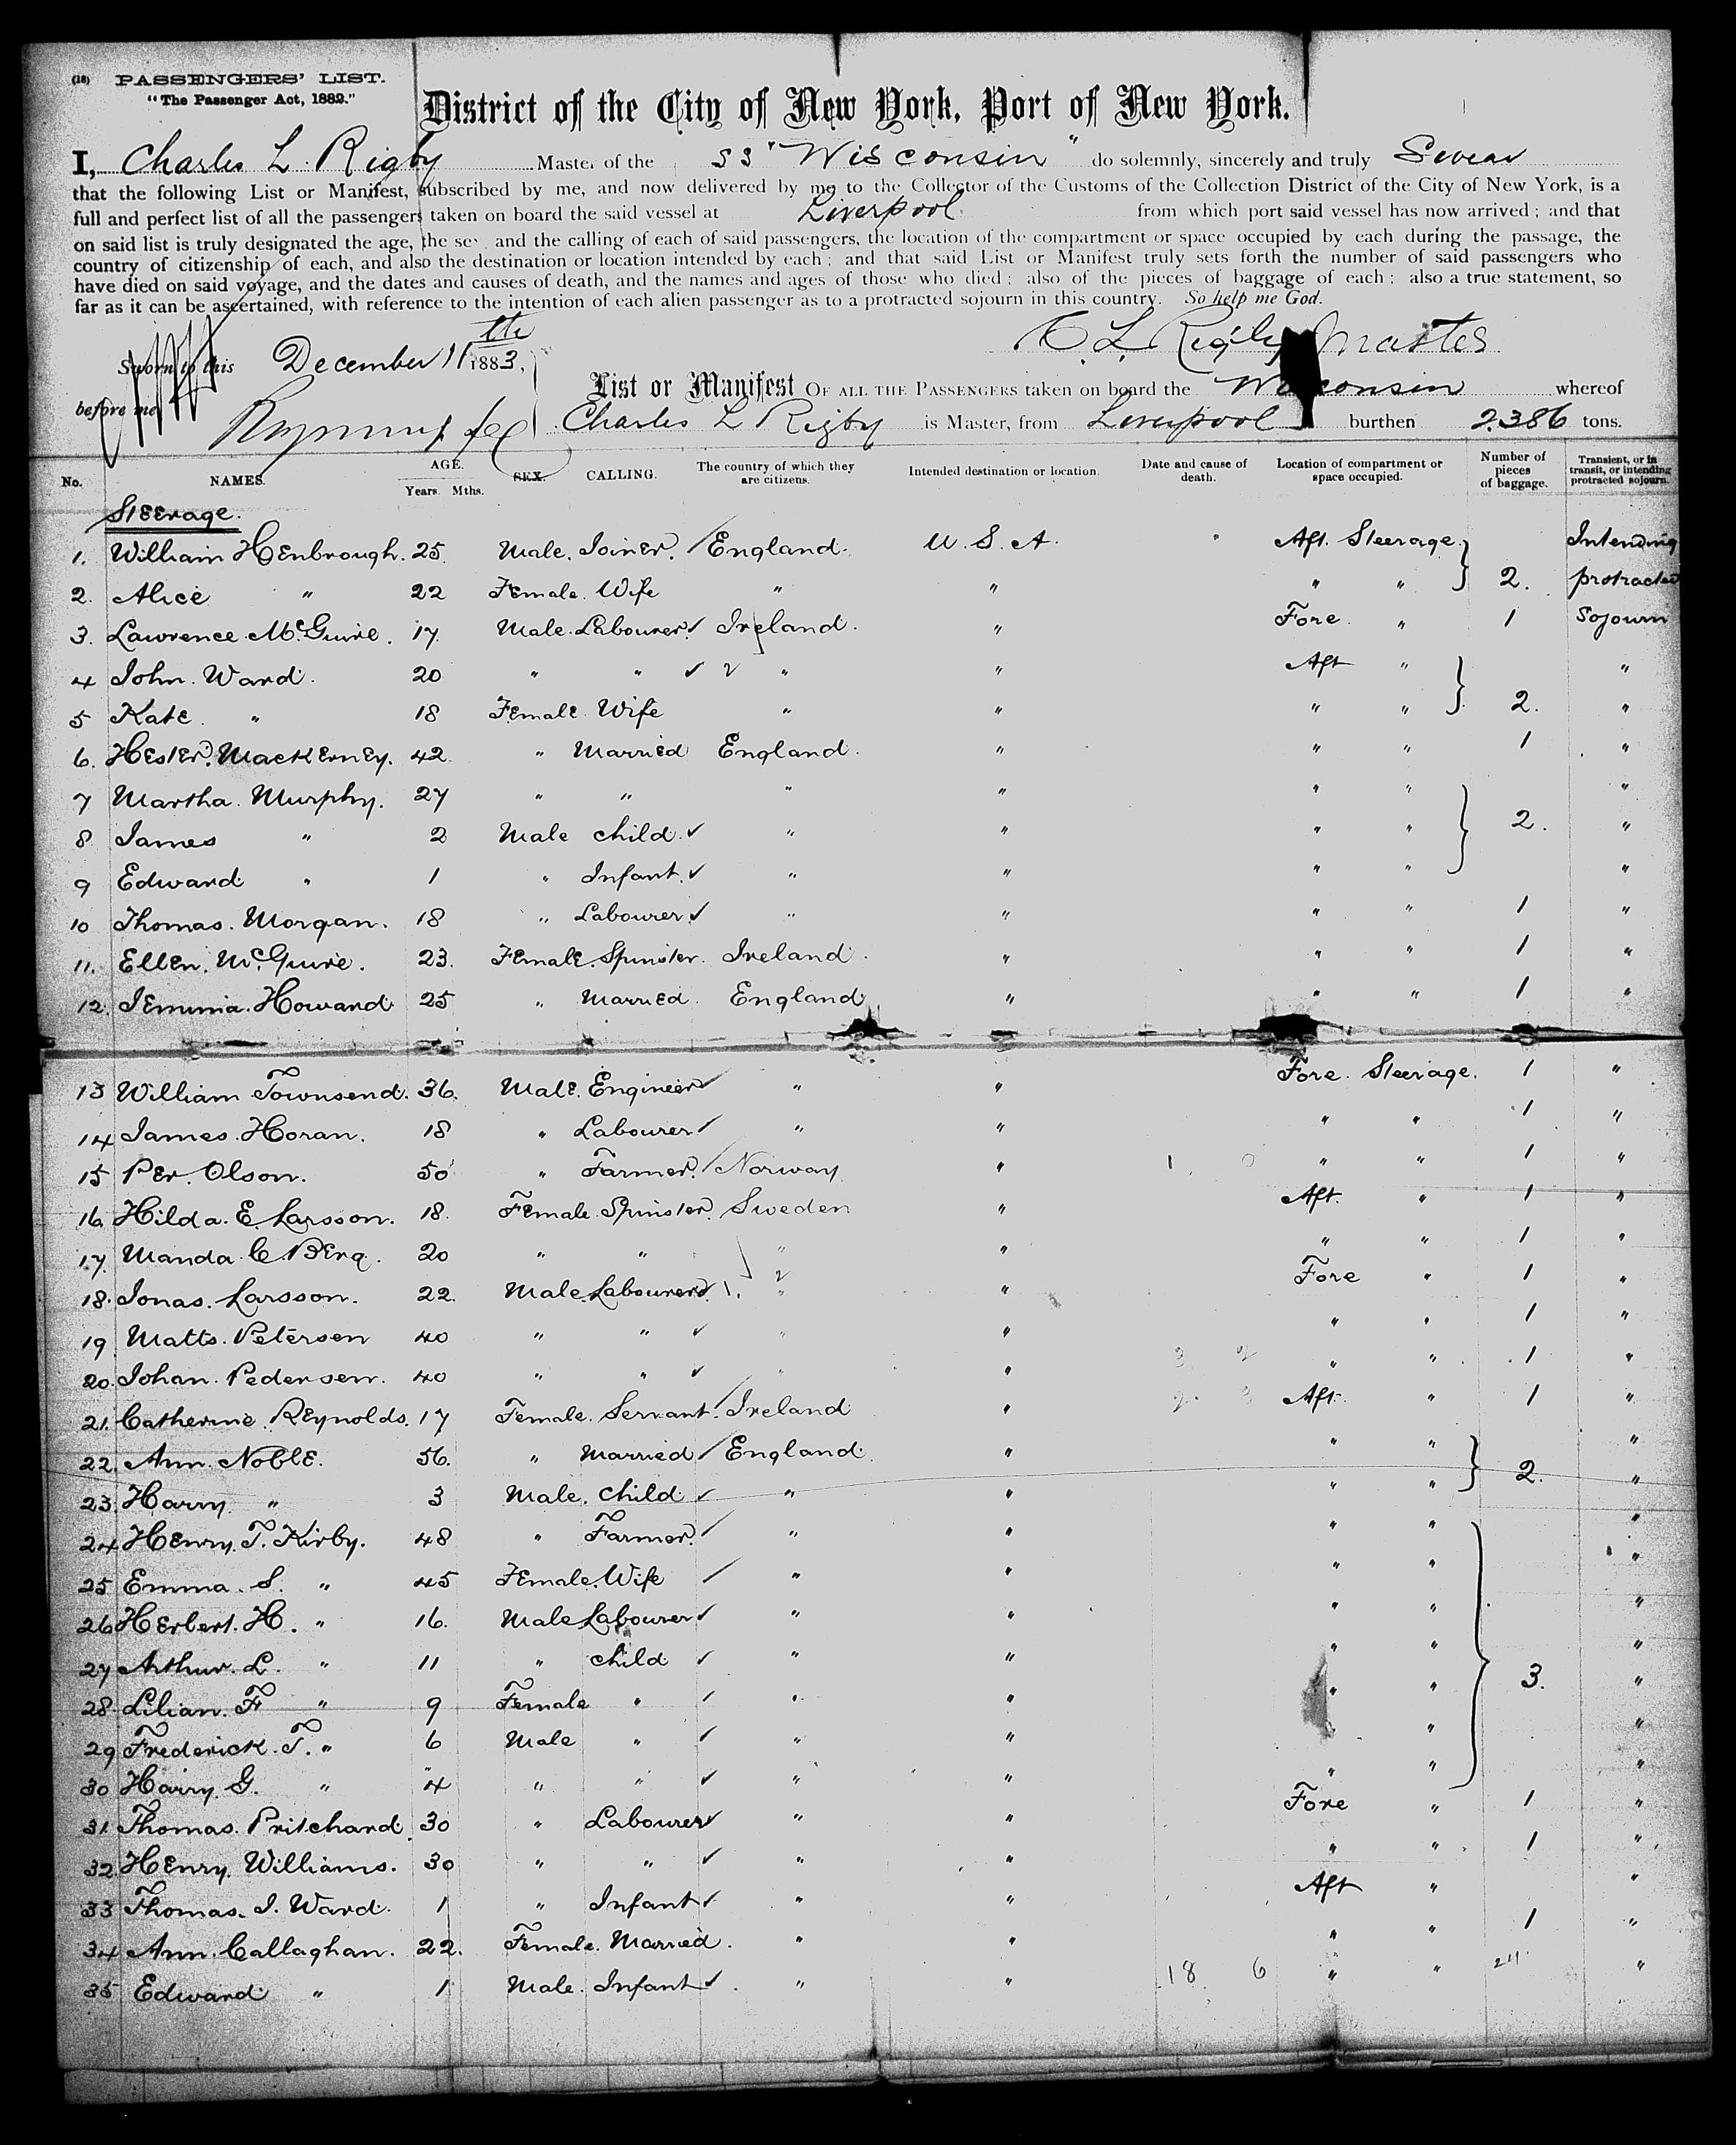 (18) PASSENGERS' LIST.
"The Passenger Act, 1882."
District of the City of New York, Port of New York.
I, Charles L. Rigby Master of the SS "Wisconsin" do solemnly, sincerely and truly Swear
that the following List or Manifest, subscribed by me, and now delivered by me to the Collector of the Customs of the Collection District of the City of New York, is a
full and perfect list of all the passengers taken on board the said vessel at Liverpool from which port said vessel has now arrived; and that
on said list is truly designated the age, the sex and the calling of each of said passengers, the location of the compartment or space occupied by each during the passage, the
country of citizenship of each, and also the destination or location intended by each; and that said List or Manifest truly sets forth the number of said passengers who
have died on said voyage, and the dates and causes of death, and the names and ages of those who died; also of the pieces of baggage of each; also a true statement, so
far as it can be ascertained, with reference to the intention of each alien passenger as to a protracted sojourn in this country. So help me God.
C. L. Rigby Master
Sworn to this December 11th 1883,
before me
List or Manifest OF ALL THE PASSENGERS taken on board the Wisconsin whereof
Charles L Rigby is Master, from Liverpool burthen 2386 tons.
No. NAMES. AGE. Years. Mths. SEX. CALLING. The country of which they are citizens. Intended destination or location. Date and cause of death. Location of compartment or space occupied. Number of pieces of baggage. Transient, or in transit, or intending protracted sojourn.
Steerage.
1. William Henbrough. 25. Male. Joiner. England. U. S. A. " Aft. Steerage. Intending
2. Alice " 22 Female. Wife " " " " 2. protracted
3. Lawrence McGuire. 17. Male. Labourer. Ireland. " Fore. " 1 Sojourn
4 John. Ward. 20 " " 2 " " Aft " "
5 Kate. " 18 Female Wife " " " " 2. "
6. Hester. MacKerney. 42. " Married England. " " " 1 "
7 Martha. Murphy. 27 " " " " " " "
8 James " 2 Male child. " " " " 2. "
9 Edward " 1 " Infant. " " " " "
10 Thomas. Morgan. 18 " Labourer " " " " 1 "
11. Ellen. McGuire. 23. Female. Spinster. Ireland. " " " 1 "
12. Jemima. Howard 25 " Married. England " " " 1 "
13 William Townsend. 36. Male. Engineer " " Fore. Steerage. 1 "
14 James. Horan. 18 " Labourer " " " " 1 "
15 Per. Olson. 50 " Farmer. Norway. " 1. 0 " " 1 "
16 Hilda. E. Larsson. 18. Female. Spinster. Sweden " Aft. " 1 "
17. Manda. C. Berg. 20 " " " " " " 1 "
18. Jonas. Larsson. 22. Male. Labourer. 1. 2 " " Fore " 1 "
19 Matts. Petersen 40 " " " " " " 1 "
20. Johan. Pedersen. 40 " " " " 3 2 " " 1 "
21. Catherine. Reynolds. 17 Female. Servant. Ireland " 2 3 Aft. " 1 "
22. Ann. Noble. 56. " Married England. " " " "
23. Harry. " 3 Male. child " " " " 2. "
24 Henry. T. Kirby. 48 " Farmer. " " " " "
25 Emma. S. " 45 Female. Wife " " " " "
26 Herbert. H. " 16. Male Labourer " " " " "
27 Arthur. L. " 11 " child " " " " "
28. Lilian. F " 9 Female " " " " " 3. "
29 Frederick. T. " 6 Male " " " " " "
30 Harry. G. " 4 " " " " " " "
31. Thomas. Pritchard. 30 " Labourer " " Fore " 1 "
32. Henry. Williams. 30 " " " " " " 1 "
33 Thomas. J. Ward. 1 " Infant " " Aft " "
34 Ann. Callaghan. 22. Female. Married. " " " " 1 "
35 Edward " 1 Male. Infant " " 18 6 " " 24 "